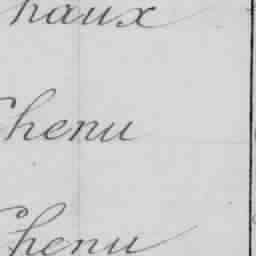 haux
Chenu
Chenu